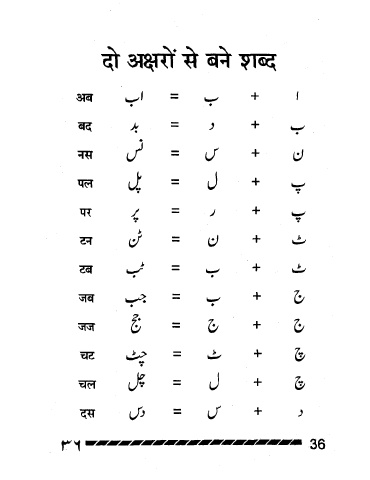 दो अक्षरों से बने शब्द
ا + ب = اب अब
ب + د = بد बद
ن + س = نس नस
پ + ل = پل पल
پ + ر = پر पर
ٹ + ن = ٹن टन
ٹ + ب = ٹب टब
ج + ب = جب जब
ج + ج = جج जज
چ + ٹ = چٹ चट
چ + ل = چل चल
د + س = دس दस
۳۶ 36